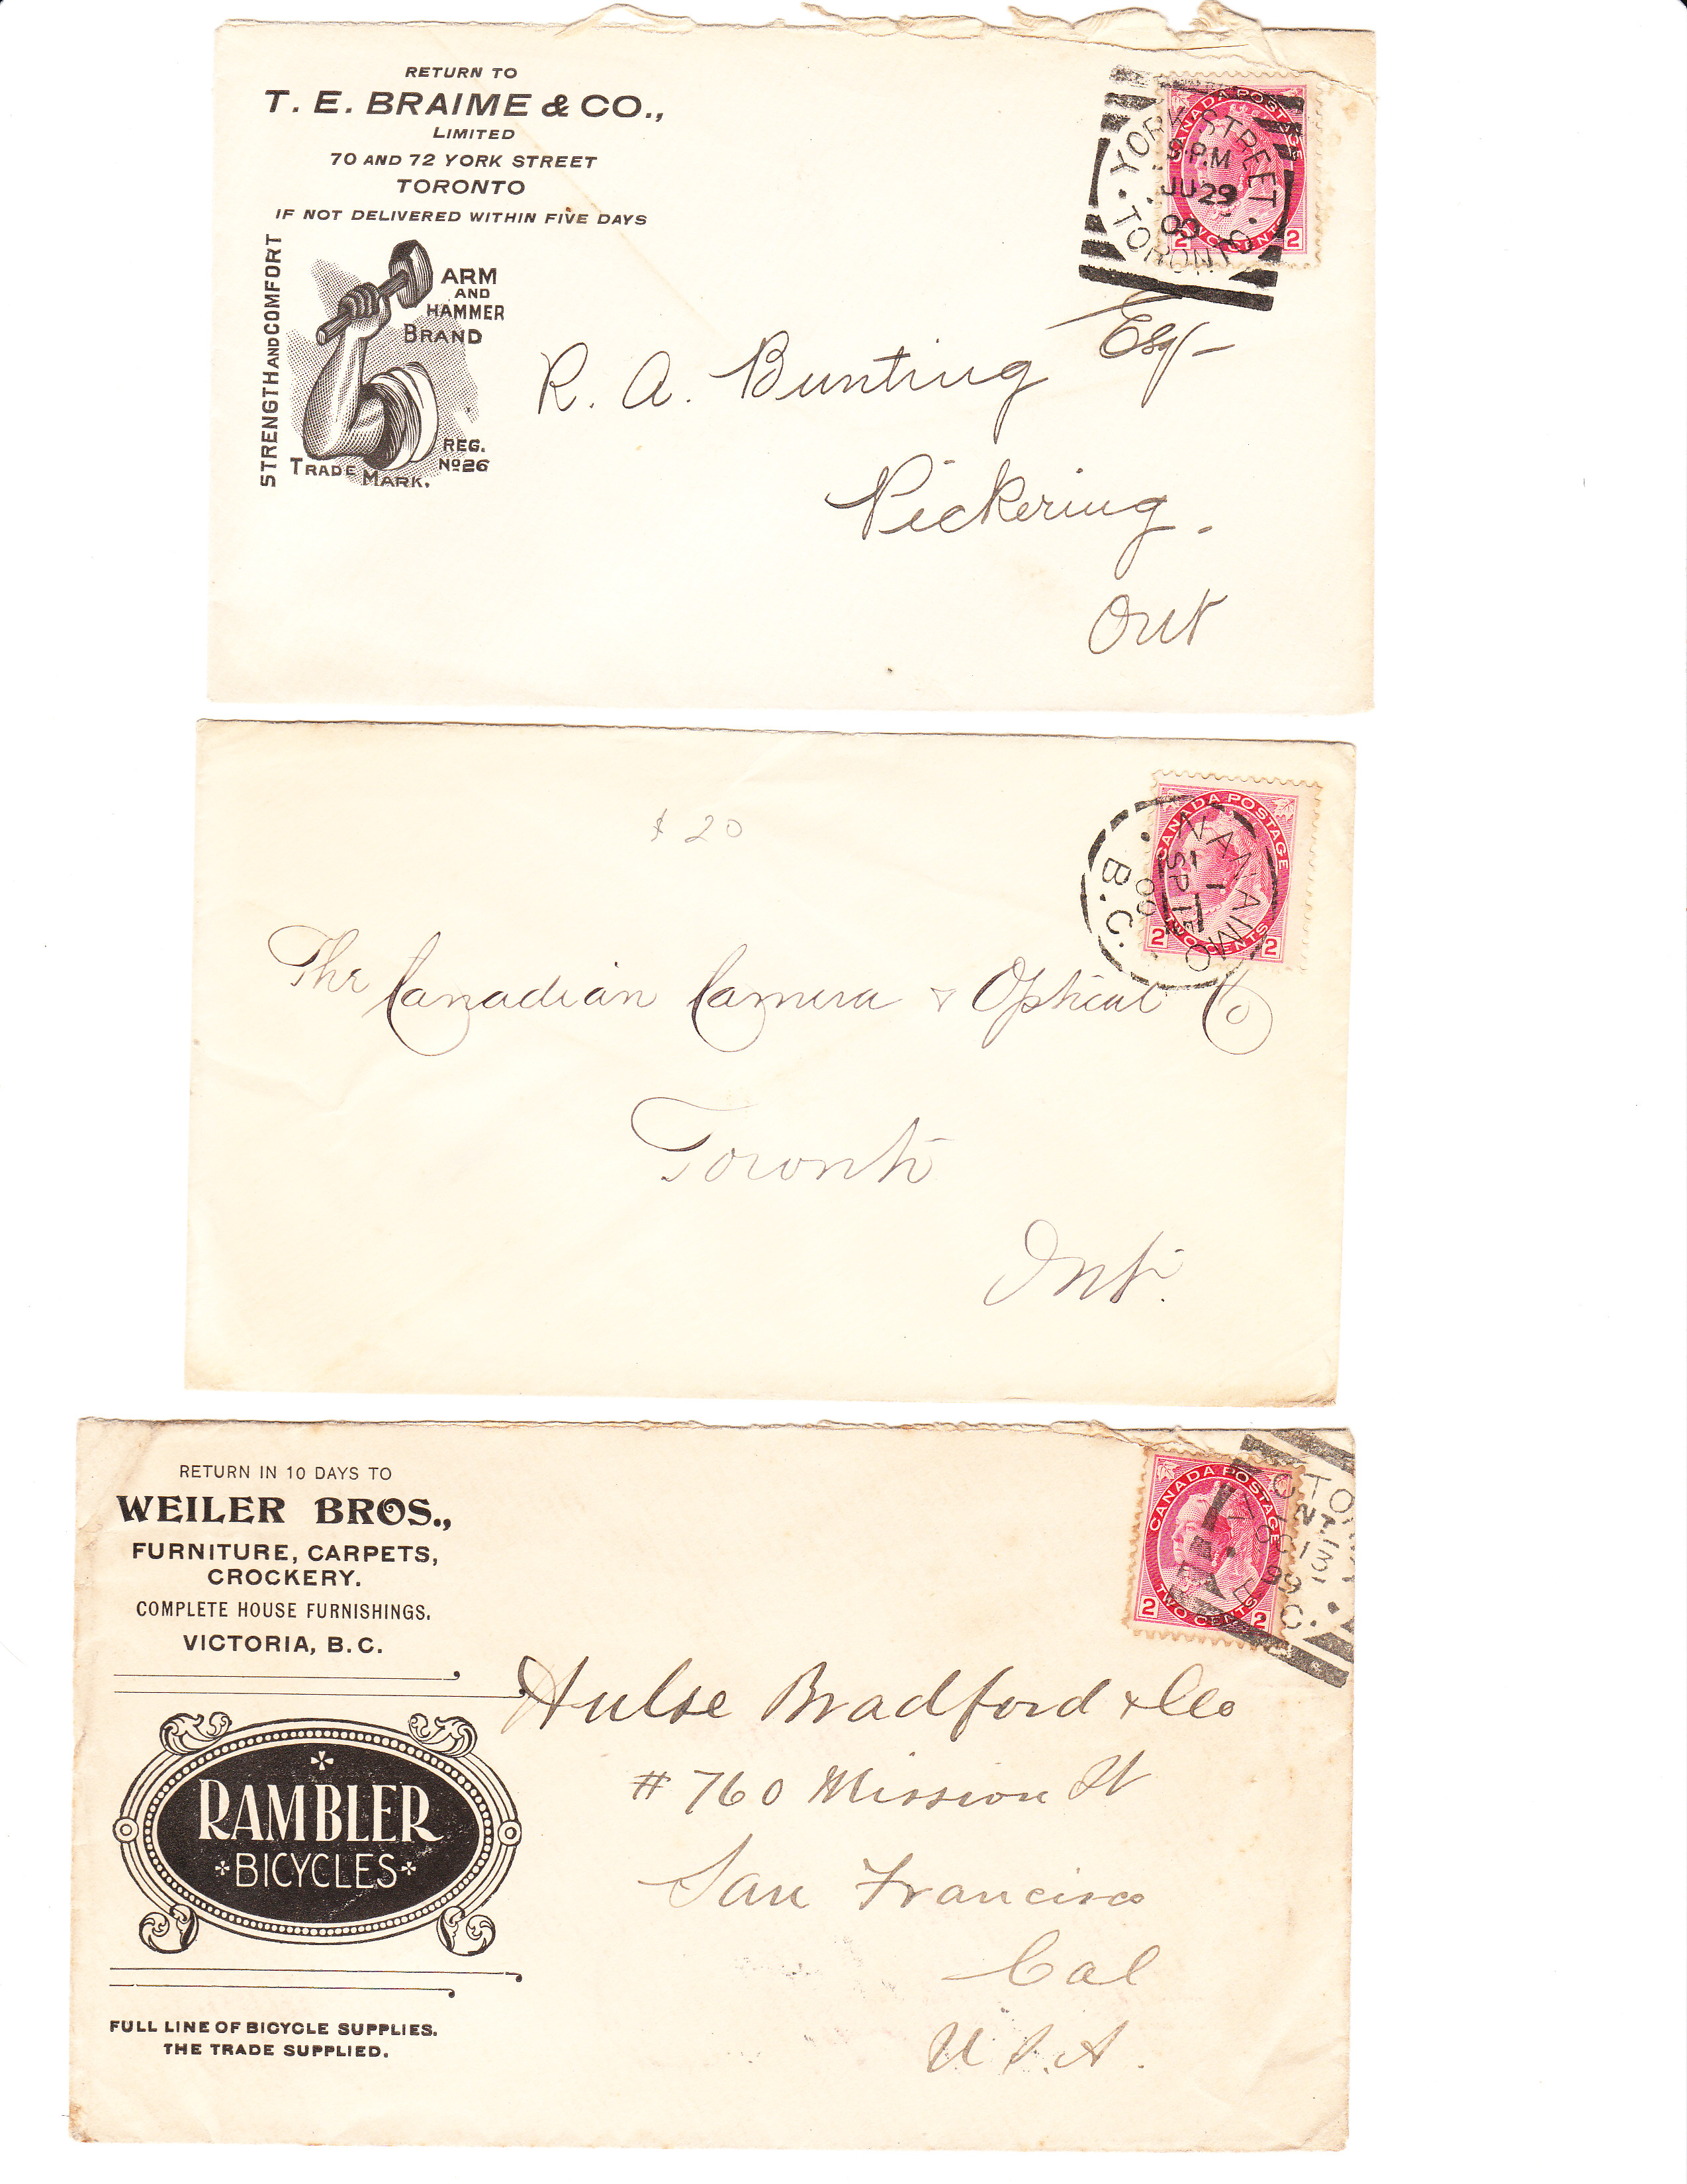 RETURN TO
T. E. BRAIME & CO.,
LIMITED
70 AND 72 YORK STREET
TORONTO
IF NOT DELIVERED WITHIN FIVE DAYS
STRENGTH AND COMFORT
ARM
AND
HAMMER
BRAND
REG.
No 26
TRADE MARK.
CANADA POSTAGE
2 TWO CENTS 2
YORK STREET
P.M
JU 29
00
TORONTO
R. A. Bunting Esq
Pickering.
Ont
$ 20
CANADA POSTAGE
2 TWO CENTS 2
NANAIMO
SP 1
00
B.C.
The Canadian Camera & Optical Co
Toronto
Ont.
RETURN IN 10 DAYS TO
WEILER BROS.,
FURNITURE, CARPETS,
CROCKERY.
COMPLETE HOUSE FURNISHINGS.
VICTORIA, B. C.
CANADA POSTAGE
2 TWO CENTS 2
13
99
RAMBLER
BICYCLES
FULL LINE OF BICYCLE SUPPLIES.
THE TRADE SUPPLIED.
Hulse Bradford & Co
# 760 Mission St
San Francisco
Cal
U.S.A.